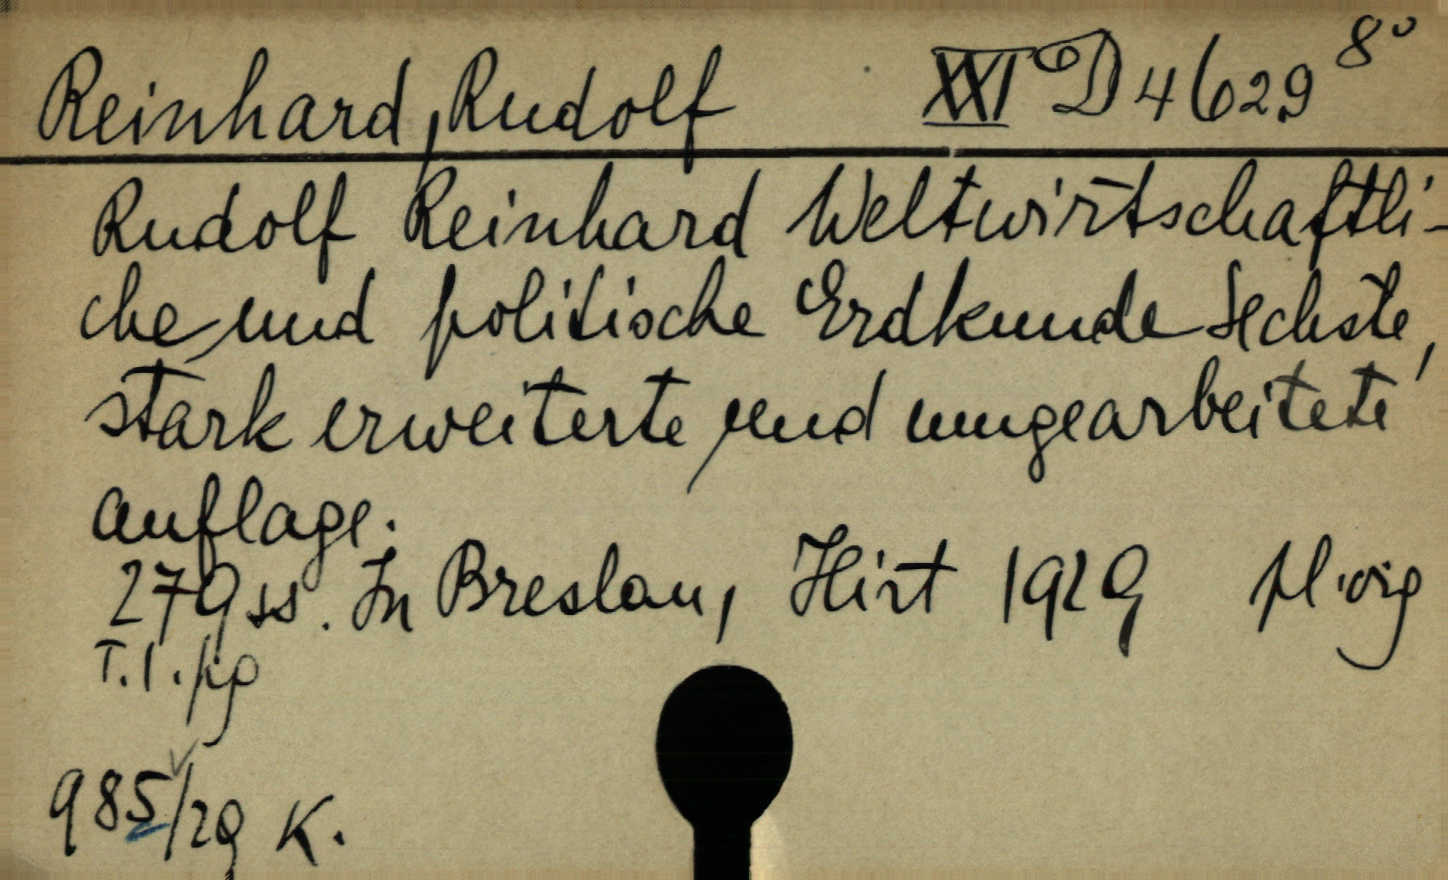 Reinhard, Rudolf XXI D 4629 8°
Rudolf Reinhard Weltwirtschaftli-
che und politische Erdkunde Sechste,
stark erweiterte und umgearbeitete
auflage.
279 ss. In Breslau, Hirt 1929
T.I.
985/29 K.